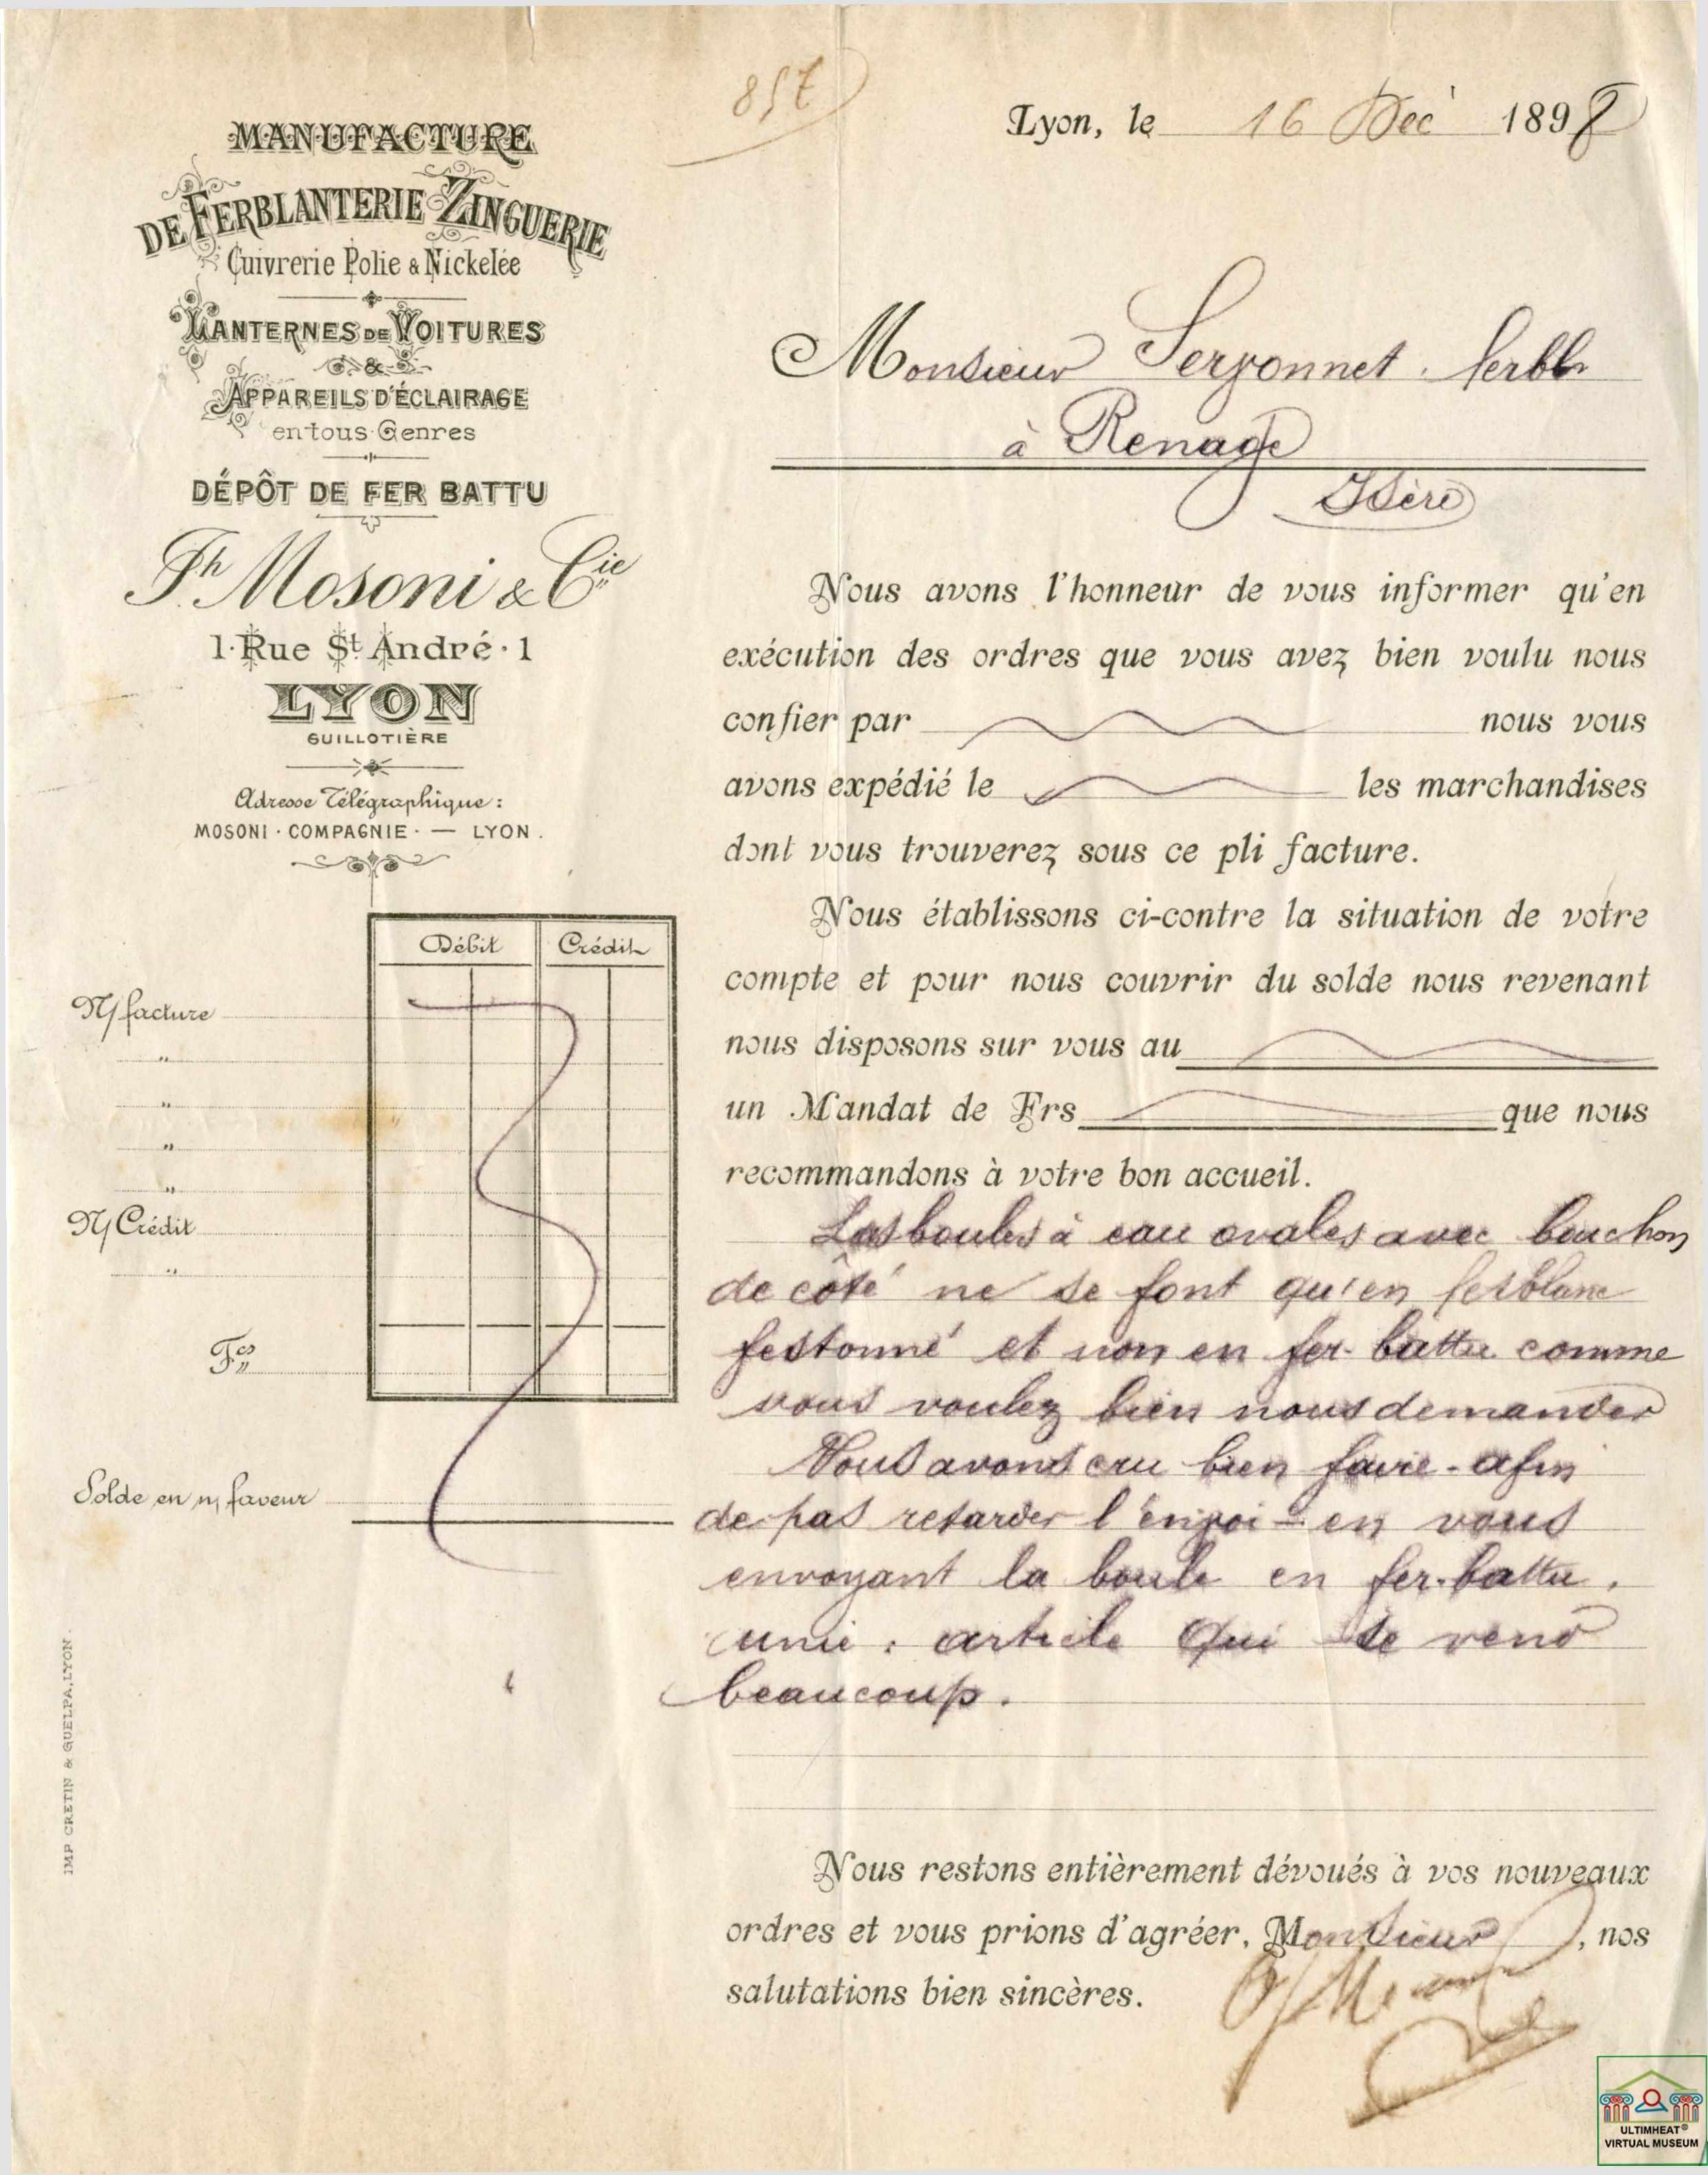 857
Lyon, le 16 Déc 1898
MANUFACTURE
DE FERBLANTERIE ZINGUERIE
Cuivrerie Polie & Nickelée
LANTERNES DE VOITURES
&
APPAREILS D'ÉCLAIRAGE
en tous Genres
DÉPÔT DE FER BATTU
Fh Mosoni & Cie
1 · Rue St André · 1
LYON
GUILLOTIÈRE
Adresse Télégraphique :
MOSONI · COMPAGNIE · — LYON .
Monsieur Seryonnet . ferblr
à Renage
Isère
Nous avons l'honneur de vous informer qu'en
exécution des ordres que vous avez bien voulu nous
confier par nous vous
avons expédié le les marchandises
dont vous trouverez sous ce pli facture.
Nous établissons ci-contre la situation de votre
compte et pour nous couvrir du solde nous revenant
nous disposons sur vous au
un Mandat de Frs que nous
recommandons à votre bon accueil.
Les boules à eau ovales avec bouchon
de côté ne se font qu'en ferblanc
festonné et non en fer-battu comme
vous voulez bien nous demander
Nous avons cru bien faire - afin
de pas retarder l'envoi - en vous
envoyant la boule en fer-battu .
unie : article qui se vend
beaucoup .
Nous restons entièrement dévoués à vos nouveaux
ordres et vous prions d'agréer, Monsieur , nos
salutations bien sincères.
Débit Crédit
N/ facture
"
"
"
"
N/ Crédit
"
Fcs
Solde en n/ faveur
IMP CRETIN & GUELPA. LYON .
ULTIMHEAT®
VIRTUAL MUSEUM